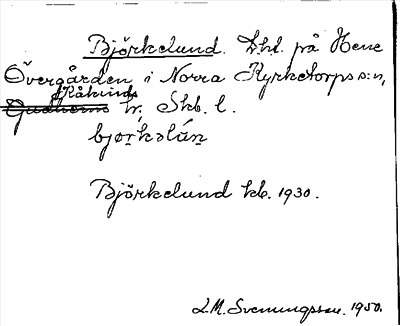 Björkelund. Lht. på Hene
Övergården i Norra Kyrketorps s:n,
Kåkinds
Gudhems hr, Skb. l.
bjørkəlán
Björkelund kb. 1930.
L.M. Svenungsson. 1950.